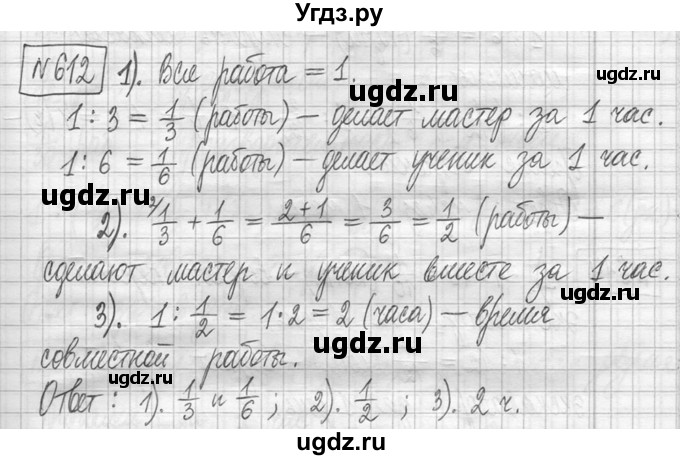 Угдз.ру
№612 1). Вся работа = 1.
1 : 3 = 1/3 (работы) — делает мастер за 1 час.
1 : 6 = 1/6 (работы) — делает ученик за 1 час.
2). ²⁾1/3 + 1/6 = 2+1/6 = 3/6 = 1/2 (работы) —
сделают мастер и ученик вместе за 1 час.
3). 1 : 1/2 = 1·2 = 2 (часа) — время
совместной работы.
Ответ: 1). 1/3 и 1/6 ; 2). 1/2 ; 3). 2 ч.
ugdz.ru
ugdz.ru
ugdz.ru
ugdz.ru
ugdz.ru
ugdz.ru
ugdz.ru
ugdz.ru
ugdz.ru